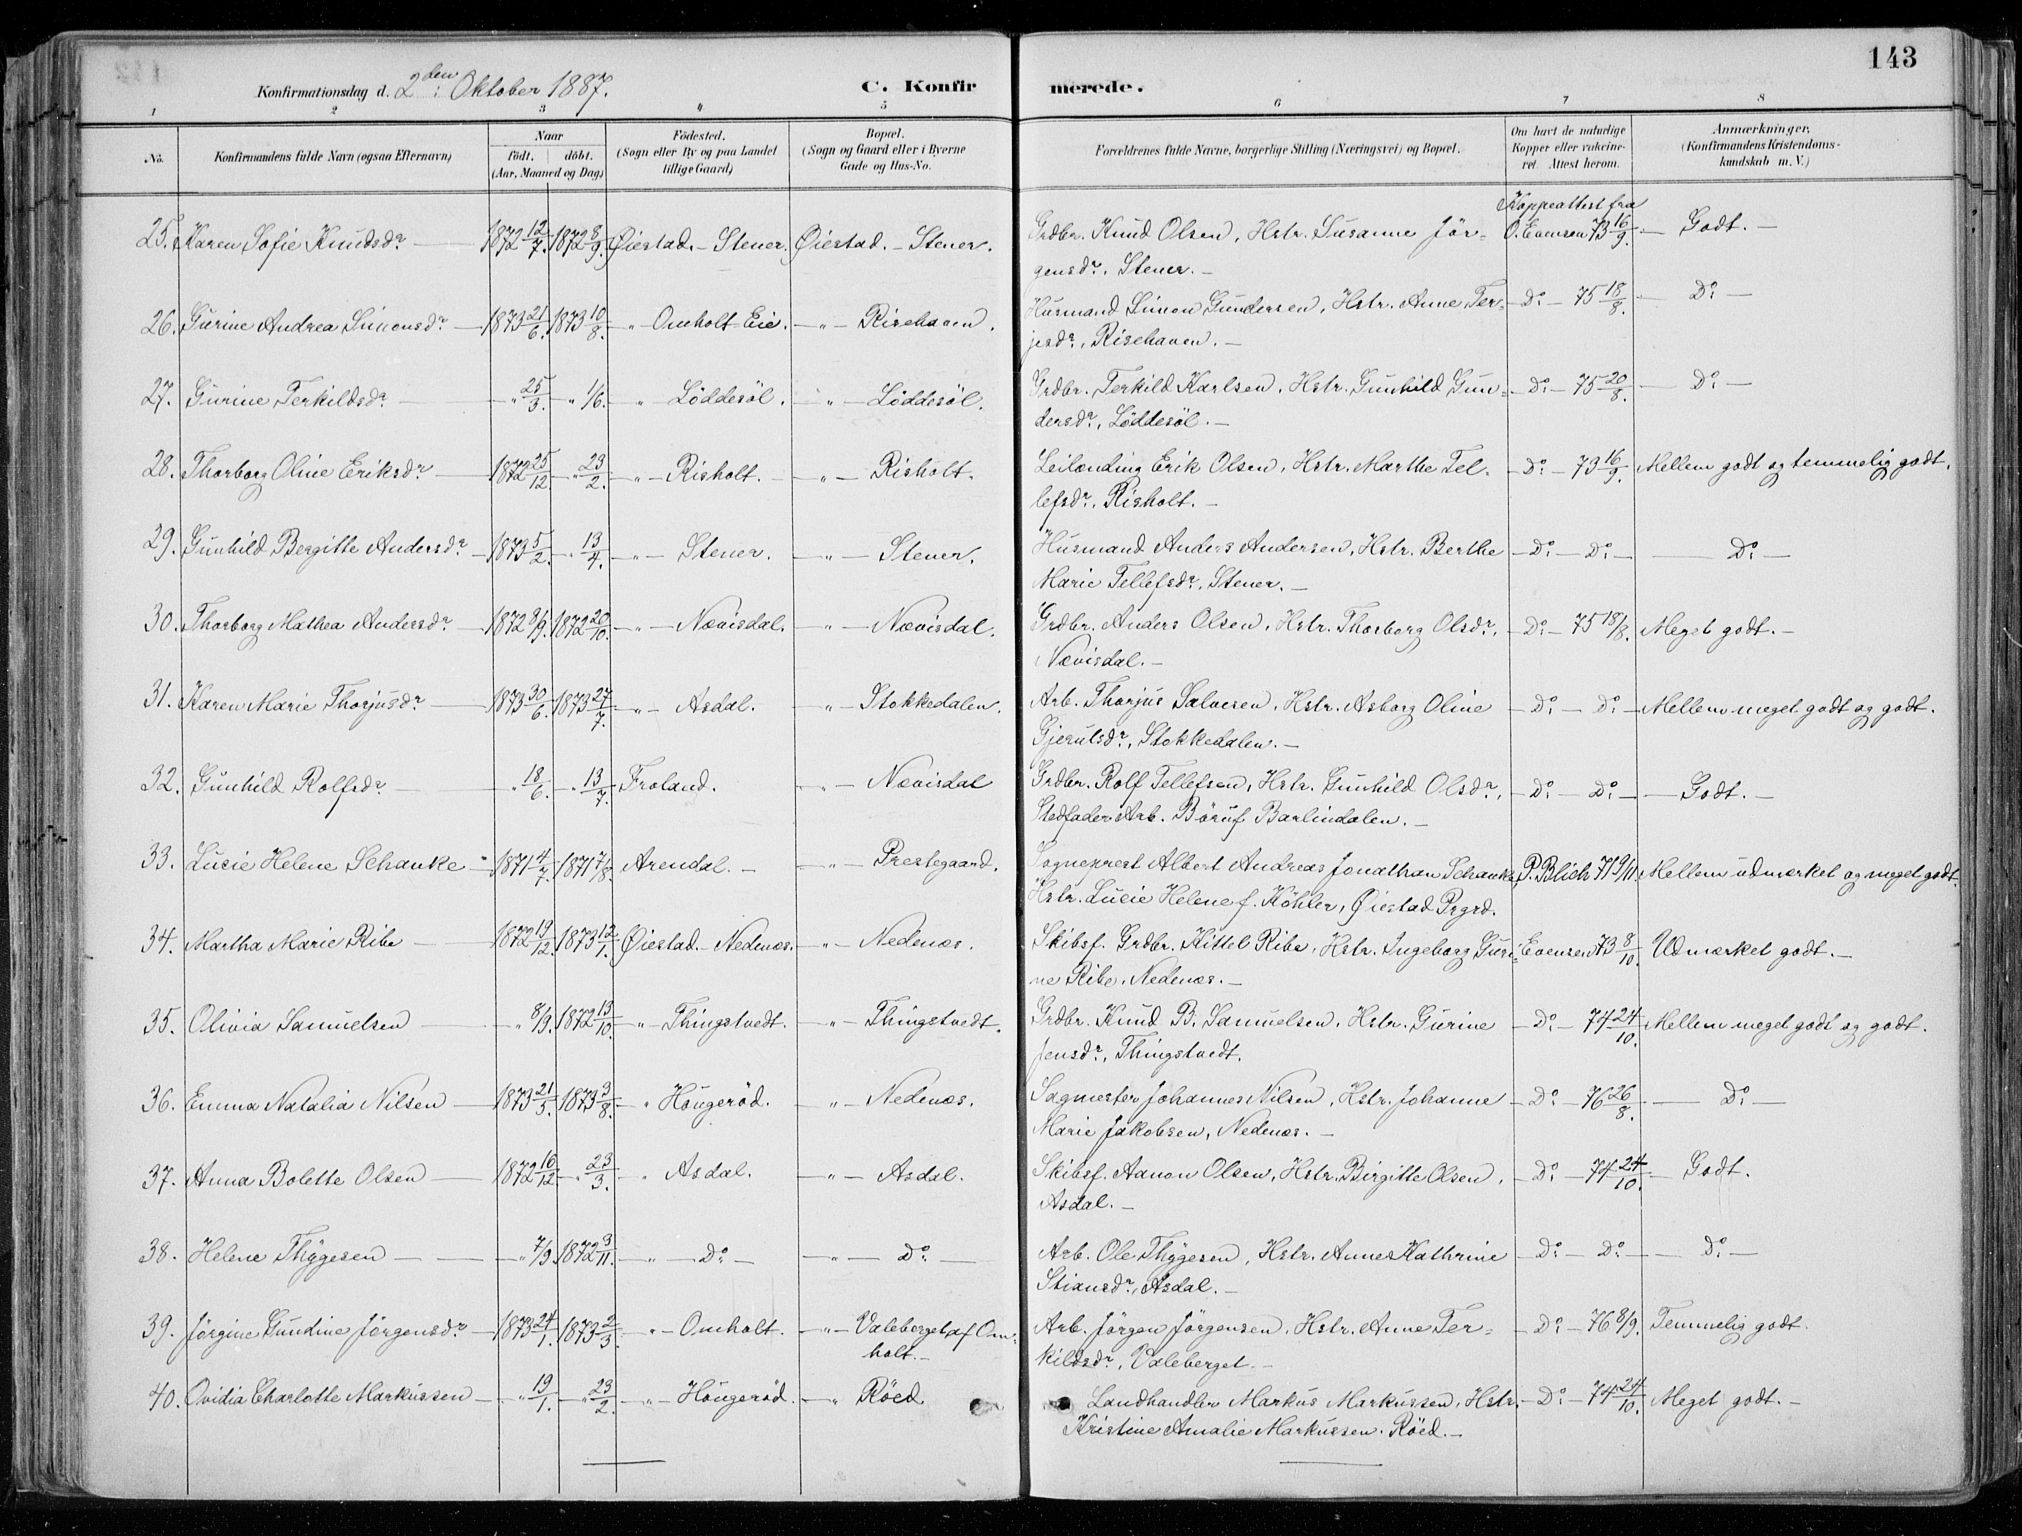 143
Konfirmationsdag d. 2den Oktober 1887.
C. Konfirmerede.
1 2 3 4 5 6 7 8
No. Konfirmandens fulde Navn (ogsaa Efternavn) Naar födt. döbt. (Aar, Maaned og Dag) Födested. (Sogn eller By og paa Landet tillige Gaard) Bopæl. (Sogn og Gaard eller i Byerne Gade og Hus-No. Forældrenes fulde Navne, borgerlige Stilling (Næringsvei) og Bopæl. Om havt de naturlige Kopper eller vaccineret. Attest herom. Anmærkninger, (Konfirmandens Kristendomskundskab m. V.)
25. Karen Sofie Knudsdr. 1872 12/7. 1872 8/9. Øiestad. - Stener. Øiestad. - Stener. Grdbr. Knud Olsen, Hstr. Susanne Jör- Koppeattest fra O. Evensen 73 16/9. Godt. -
gensdr. Stener. -
26. Gurine Andrea Simonsdr. 1873 21/6. 1873 10/8. " Omholt-Eie. " Risehaven. Husmand Simon Gundersen, Hstr. Anne Ter- Do. 75 18/8. Do.
jesdr., Risehaven. -
27. Gurine Terkildsdr. " 25/3. " 1/6. " Löddesöl. " Löddesöl. Grdbr. Terkild Karlsen, Hstr. Gunhild Gun- Do. 75 20/8. Do.
dersdr., Löddesöl. -
28. Thorborg Oline Eriksdr. 1872 25/12. " 23/2. " Risholt. " Risholt. Leilænding Erik Olsen, Hstr. Marthe Tel- Do. 73 16/9. Mellem godt og temmelig godt.
lefsdr. Risholt. -
29. Gunhild Bergitte Andersdr. 1873 5/2. " 13/4. " Stener. " Stener. Husmand Anders Andersen, Hstr. Berthe Do. Do. Do.
Marie Tellefsdr. Stener. -
30. Thorborg Mathea Andersdr. 1872 8/9. 1872 20/10. " Nævisdal. " Nævisdal. Grdbr. Anders Olsen, Hstr. Thorborg Olsdr., Do. 75 18/8. Meget godt. -
Nævisdal. -
31. Karen Marie Thorjusdr. 1873 30/6. 1873 27/7. " Asdal. " Stokkedalen. Arb. Thorjus Salvesen, Hstr. Asborg Oline Do. Do. Mellem meget godt og godt.
Gjerulsdr., Stokkedalen. -
32. Gunhild Rolfsdr. " 18/6. " 13/7. Froland. " Nævisdal Grdbr. Rolf Tellefsen, Hstr. Gunhild Olsdr., Do. Do. Godt. -
Stedfader Arb. Böruf Barlindalen. -
33. Lucie Helene Schanke 1871 4/7. 1871 7/8. Arendal. - " Prestegaard. Sogneprest Albert Andreas Jonathan Schanke, P. Blich 71 9/11. Mellem udmærket og meget godt.
Hstr. Lucie Helene f. Köhler, Øiestad Prgrd.
34. Martha Marie Ribe 1872 19/12. 1873 12/1. Øiestad. - Nedenæs. " Nedenæs. Skibsf. Grdbr. Kittel Ribe, Hstr. Ingeborg Guri- Evensen 73 8/10. Udmærket godt. -
ne Ribe, Nedenæs. -
35. Olivia Samuelsen " 8/9. 1872 13/10. " Thingstvedt. " Thingstvedt. Grdbr. Knud B. Samuelsen, Hstr. Gurine Do. 74 24/10. Mellem meget godt og godt.
Jensdr., Thingstvedt.
36. Emma Natalia Nilsen 1873 21/5. 1873 3/8. " Hougeröd. " Nedenæs. Sagmester Johannes Nilsen, Hstr. Johanne Do. 76 26/8. Do.
Marie Jakobsen, Nedenæs. -
37. Anna Bolette Olsen 1872 16/12. " 23/3. " Asdal. " Asdal. Skibsf. Aanon Olsen, Hstr. Birgitte Olsen, Do. 74 24/10. Godt.
Asdal. -
38. Helene Thygesen " 7/9. 1872 3/11. " Do. " Do. Arb. Ole Thygesen, Hstr. Anne Kathrine Do. Do. Do.
Stiansdr., Asdal. -
39. Jörgine Gundine Jörgensdr. 1873 24/1. 1873 2/3. " Omholt. " Valeberget af Om- Arb. Jörgen Jörgensen, Hstr. Anne Ter- Do. 76 8/9. Temmelig godt.
holt. - kildsdr., Valeberget. -
40. Ovidia Charlotte Markussen " 19/1. " 23/2. " Hougeröd. " Röed Landhandler Markus Markussen, Hstr. Do. 74 24/10. Meget godt. -
Kristine Amalie Markussen. Röed. -